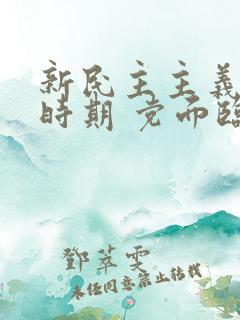 新民主主義
時期 党而臨
鄧萃雯
未任同意禁止转载